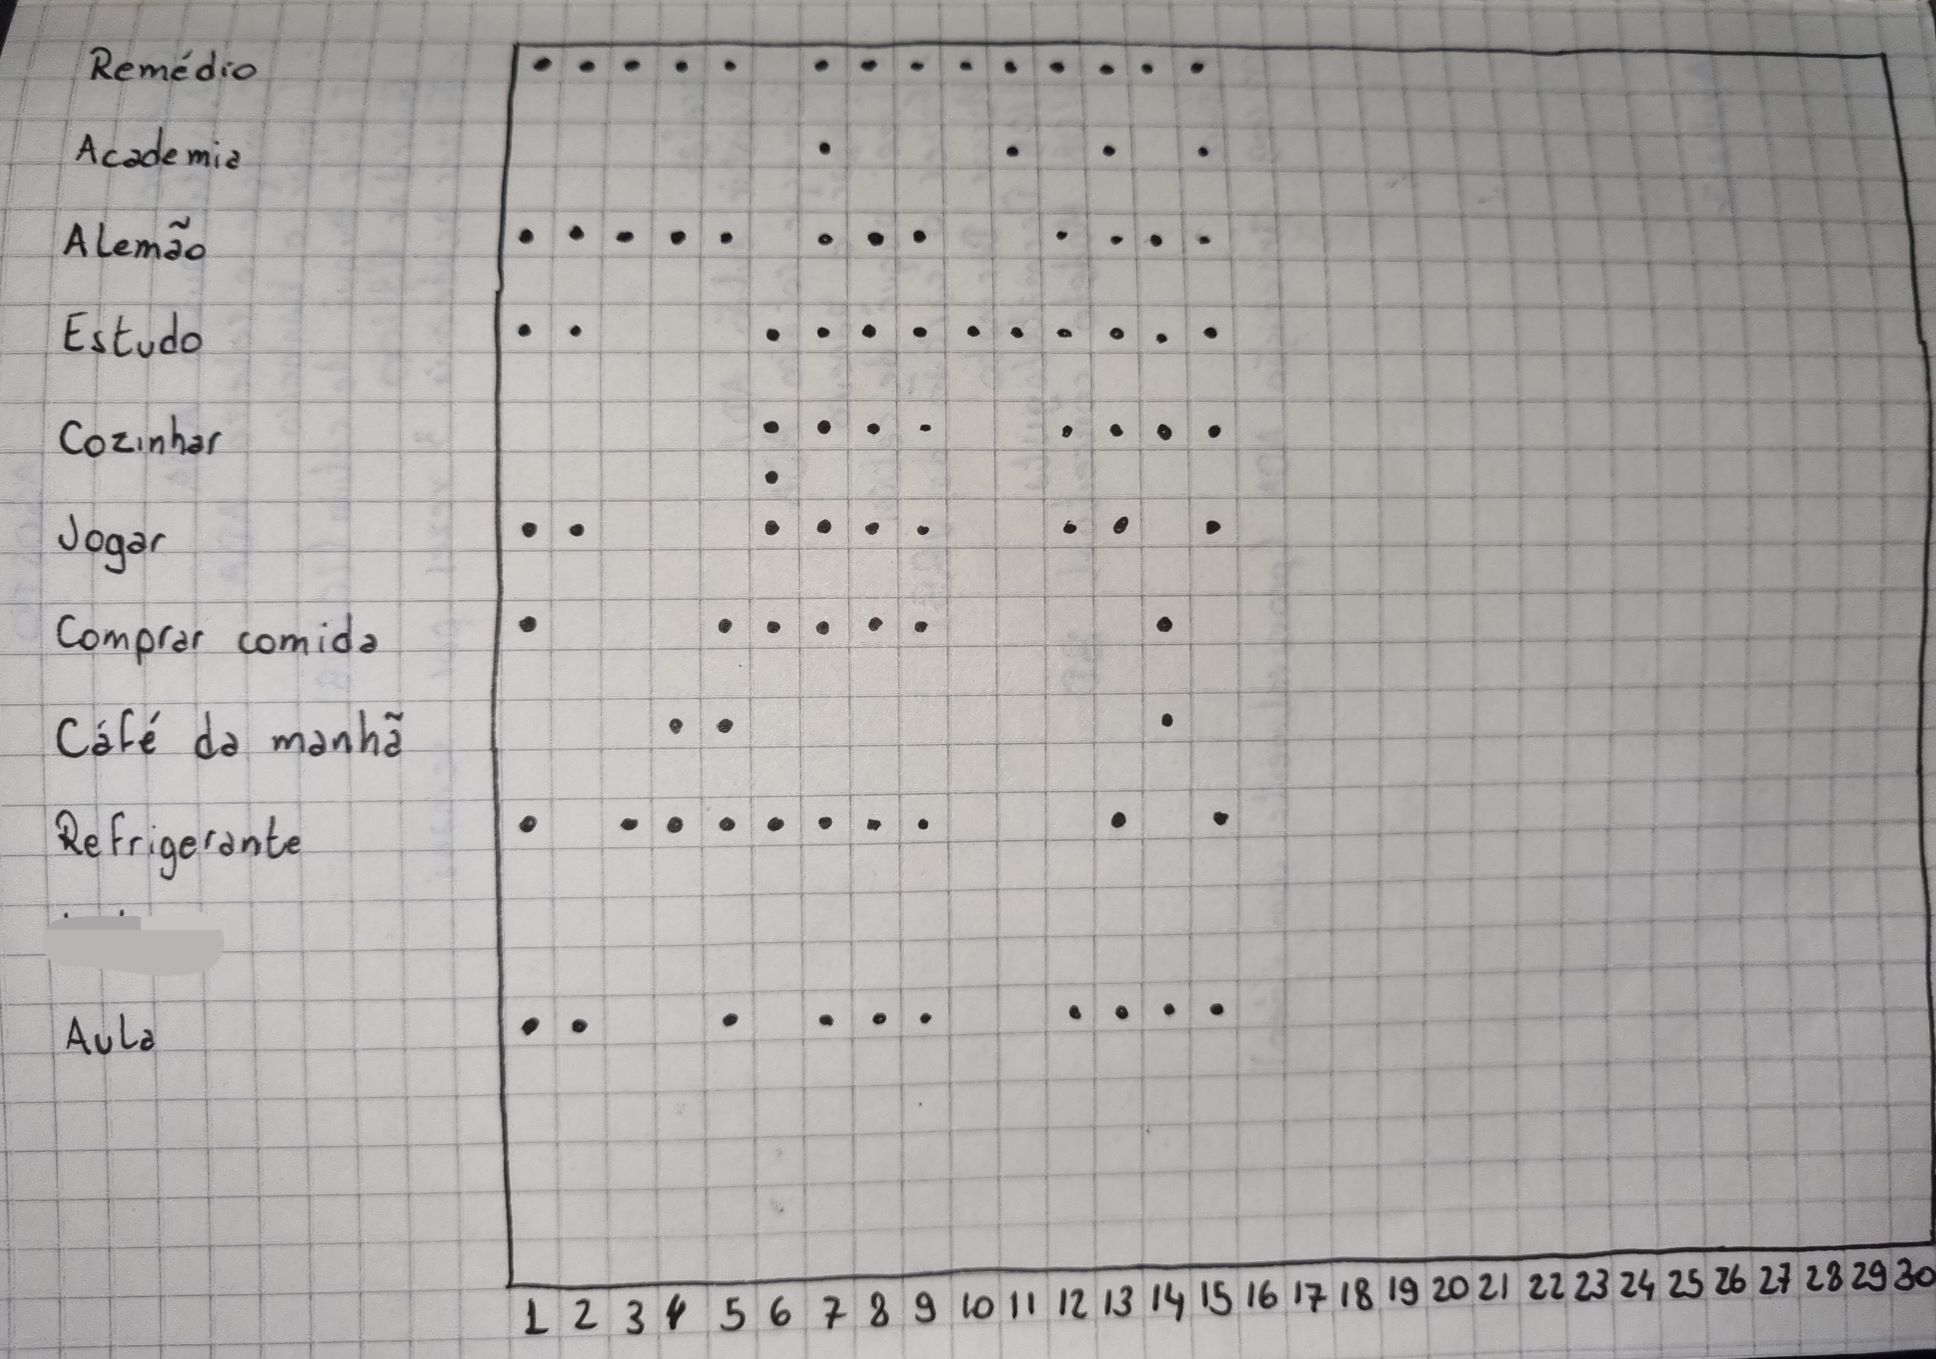 Remédio
Academia
Alemão
Estudo
Cozinhar
Jogar
Comprar comida
Cáfé da manhã
Refrigerante
Aula
1 2 3 4 5 6 7 8 9 10 11 12 13 14 15 16 17 18 19 20 21 22 23 24 25 26 27 28 29 30